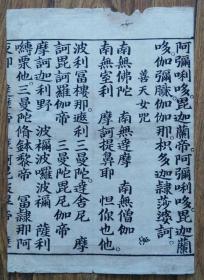 阿彌唎哆毘迦蘭帝阿彌唎哆毘迦蘭
哆伽彌膩伽伽那枳多迦隸莎婆訶
善天女咒
南無佛陀　南無達摩　南無僧伽
南無室利　摩訶提鼻耶　怛你也他
波利富樓那遮利三曼陀達舍尼　摩
訶毘訶羅伽帝　三曼陀毘尼伽帝
摩訶迦利野　波禰波囉波禰　薩利
嚩栗他　三曼陀修鉢黎帝　富隸那阿